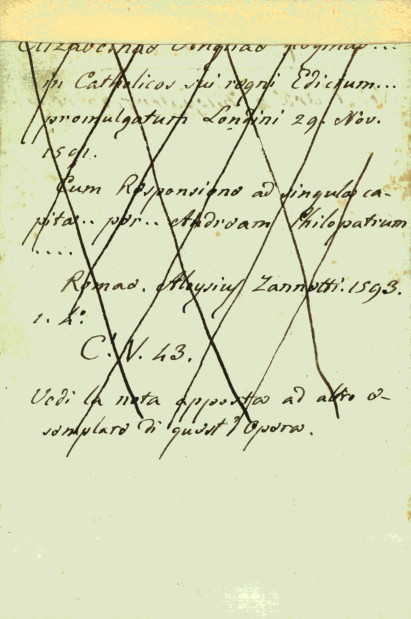 Elizabethae Angliae Reginae...
in Catholicos sui regni Edictum...
promulgatum Londini 29. Nov.
1591.
Cum Responsione ad singula ca-
pita.. per.. Andream Philopatrum
....
Romae. Aloysius Zannetti. 1593.
1. 4.o
C. V. 43.
Vedi la nota apposta ad altro e-
semplare di quest' Opera.